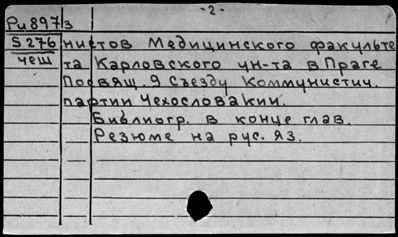 -2-
Ри8973
S276
чеш
нистов Медицинского факульте
та Карловского ун-та в Праге
Посвящ. 9 съезду Коммунистич.
партии Чехословакии.
Библиогр. в конце глав.
Резюме на рус. яз.